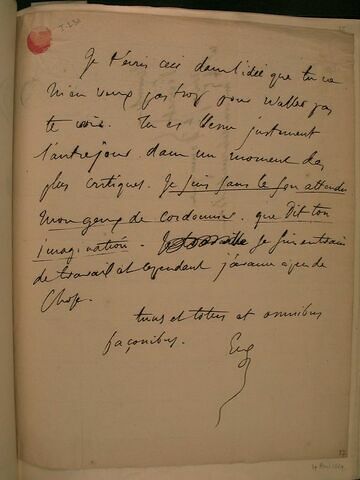 T. 237
Je t'écris ceci dans l'idée que tu ne
m'en veux pas trop pour n'aller pas
te voir. Tu es venu justement
l'autre jour dans un moment des
plus critiques. Je suis sans le sou attendu
mon genre de que dit ton
imagination. Je suis en train
de travail et cependant j'avance à peu de
chose.
tuus et totus et omnibus
façonibus.
Eug